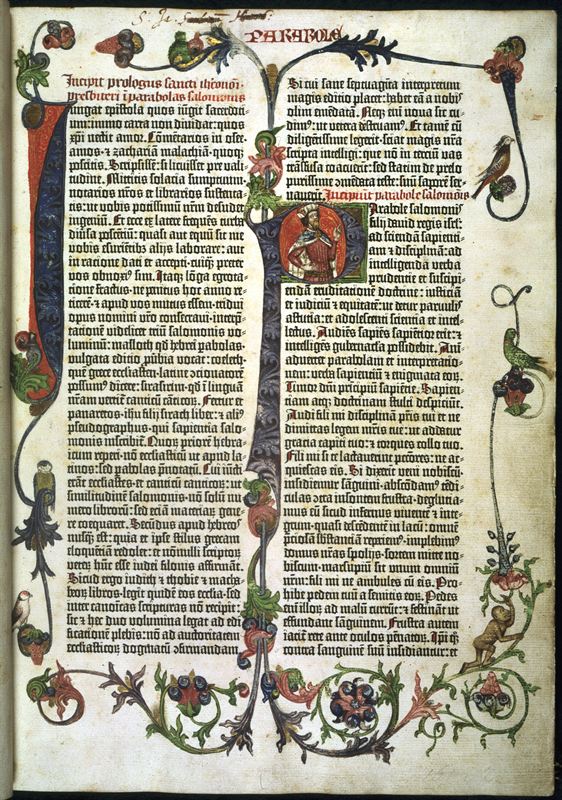 PARABOLE
Incipit prologus sancti iheronimi
presbiteri i parabolas salomonis
Iungat epistola quos iugit sacerdoti-
um: immo carta non dividat: quos
xpi nectit amor. Cõmētarios in osee
amos ⁊ zachariã malachiã· quoq;
poscitis. Scripsissẽ: si licuisset pre vali-
tudine. Mittitis solacia sumptuum·
notarios nr̃os et librarios sustenta-
tis: ut vobis potissimũ nr̃m desudet
ingeniũ. Et ecce ex latere freq̃ns turba
diũsa poscentiũ: quasi aut equũ sit me
vobis esurientibꝫ alijs laborare: aut
in ratione dati et accepti· cuiq̃; preter
vos obnoxiꝰ sim. Itaq; lõga egrota-
tione fractus· ne penitus hoc anno re-
ticerẽ· ⁊ apud vos mutus essem· tridui
opus nomini vr̃o consecravi· interp̃-
tationẽ videlicet triũ salomonis vo-
luminũ: masloth qđ hebrei pabolas·
vulgata editio ṗbia vocat: coeleth·
quẽ grece ecclesiasten· latine ɔcionatorẽ
possumꝰ dicere: sirasirim· qđ ĩ linguã
nr̃am vertit̃ canticũ cãticorꝫ. Fertur et
panaretos· ihu filij sirach liber: ⁊ aliꝰ
pseudographus· qui sapientia salo-
monis inscribit̃. Quorꝫ priorẽ hebra-
icum reperi· nõ ecclesiasticũ ut apud la-
tinos: sed pabolas p̃notatũ. Cui iũcti
erãt ecclesiastes· et canticũ canticorꝫ: ut
similitudinẽ salomonis· nõ solũ nu-
mero librorũ: sed etiã materiarꝫ gene-
re coequaret. Secũdus apud hebreos
nusq̃ est: quia et ipse stilus grecam
eloquẽtiã redolet: et nõnulli scriptorꝫ
veterꝫ hũc esse iudei filonis affirmãt.
Sicud ergo iudith ⁊ thobie ⁊ macha-
beorꝫ libros· legit quidẽ eos ecclia· sed
inter canonicas scripturas nõ recipit:
sic ⁊ hec duo volumina legat ad edi-
ficationẽ plebis: nõ ad auctoritatem
ecclesiasticorꝫ dogmatũ ɔfirmandam.
Si cui sane septuaginta interpretum
magis editio placet: habet eã a nobis
olim emēdatã. Neq; enĩ nova sic cu-
dimꝰ: ut vetera destruamꝰ. Et tamẽ cũ
diligētissime legerit· sciat magis nr̃a
scripta intelligi: que nõ in terciũ vas
trãsfusa coacuerĩt: sed statim de prelo
purissime ɔmēdata teste: suũ saporẽ ser-
vaverĩt. Incipiũt parabole salomõis
Parabole salomonis
filij david regis isrl̃:
ad sciendã sapienti-
am ⁊ disciplinã: ad
intelligendã verba
prudentie et suscipi-
endã eruditationẽ doctrine: iusticiã
et iudiciũ ⁊ equitatẽ: ut detur parvulis
astutia: et adolescenti scientia et intel-
lectus. Audiẽs sapiẽs sapiẽtior erit: ⁊
intelligẽs gubernacla possidebit. Ani-
advertet parabolam et interpretatio-
nem: verba sapientiũ ⁊ enigmata eorꝫ.
Timor dñi principiũ sapiẽtie. Sapien-
tiam atq; doctrinam stulti despiciũt.
Audi fili mi disciplinã pr̃is tui et ne
dimittas legem mr̃is tue: ut addatur
gratia capiti tuo: ⁊ torques collo tuo.
Fili mi si te lactaverint pctõres: ne ac-
quiescas eis. Si dixerĩt veni nobiscũ·
insidiemur sãguini· abscõdamꝰ tẽdi-
culas ɔtra insontem frustra· deglutia-
mus eũ sicud infernus viventẽ ⁊ inte-
grum· quasi descēdentẽ in lacũ: omnẽ
p̃ciosã substanciã reperiemꝰ· implebimꝰ
domus nr̃as spolijs· sortem mitte no-
biscum· marsupiũ sit unum omniũ
nr̃m: fili mi ne ambules cũ eis. Pro-
hibe pedem tuũ a semitis eorꝫ. Pedes
enĩ illorꝫ ad malũ currũt: ⁊ festinãt ut
effundant sãguinem. Frustra autem
iacit̃ rete ante oculos pẽnatorꝫ. Ipĩ q̃;
contra sanguinẽ suũ insidiantur: et